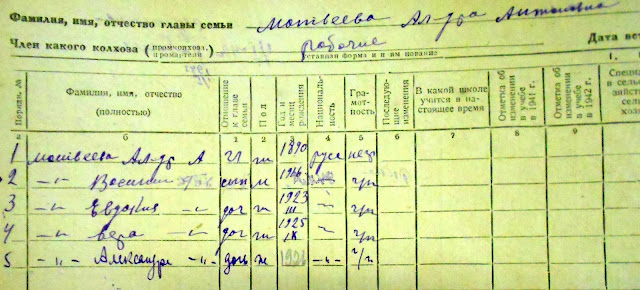 Фамилия, имя, отчество главы семьи Матвеева Ал-дра Антоновна
Член какого колхоза (промколхоза, промартели) рабочие
уставная форма и наименование
Дата вст
I.
Порядк. №
Фамилия, имя, отчество (полностью)
Отношение к главе семьи
Пол
Год и месяц рождения
Националь-ность
Гра-мот-ность
Последую-щие изменения
В какой школе учится в на-стоящее время
Отметка об изменении в учебе в 1941 г.
Отметка об изменении в учебе в 1942 г.
Специа
в сель
зяйств
сел
хозя
а б 1 2 3 4 5 6 7 8 9
1 Матвеева Ал-др А гл ж 1890 русс негр
2 -"- Василий сын м гр
3 -"- Евдокия -"- доч ж 1923 III -"- гр
4 -"- Вера -"- доч ж 1925 IX -"- гр
5 -"- Александра -"- дочь ж -"- гр